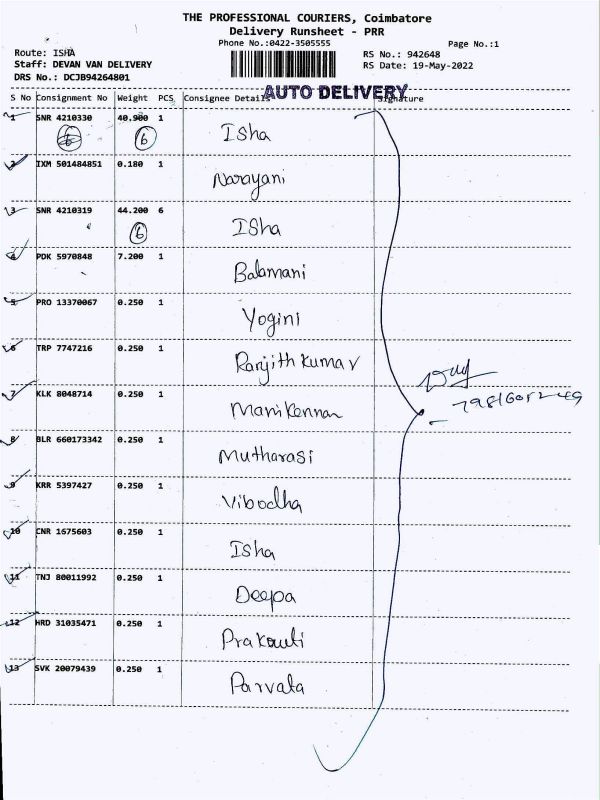 THE PROFESSIONAL COURIERS, Coimbatore
Delivery Runsheet - PRR
Phone No.:0422-3505555
Page No.:1
Route: ISHA
RS No.: 942648
Staff: DEVAN VAN DELIVERY
RS Date: 19-May-2022
DRS No.: DCJB94264801
AUTO DELIVERY
S No Consignment No Weight PCS Consignee Details Signature
1 SNR 4210330 40.900 1 Isha
6 6
2 IXM 501484851 0.180 1 Narayani
3 SNR 4210319 44.200 6 Isha
6
4 PDK 5970848 7.200 1 Balamani
5 PRO 13370067 0.250 1 Yogini
6 TRP 7747216 0.250 1 Ranjith Kumar
7 KLK 8048714 0.250 1 Manikennan
8 BLR 660173342 0.250 1 Mutharasi
9 KRR 5397427 0.250 1 Vibodha
10 CNR 1675603 0.250 1 Isha
11 TNJ 80011992 0.250 1 Deepa
12 HRD 31035471 0.250 1
13 SVK 20079439 0.250 1 Parvata